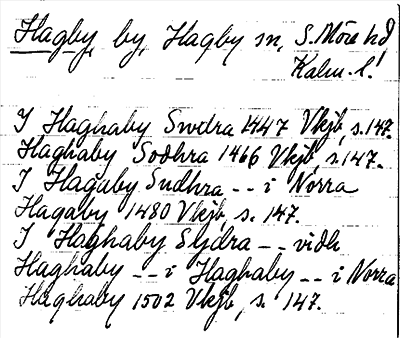 Hagby, by, Hagby sn, S. Möre hd
Kalm. l.
I Haghaby Swdra 1447 Vkjb, s. 147.
Haghaby Sodhra 1466 Vkjb, s. 147.
I Hagaby Sudhra -- i Norra
Hagaby 1480 Vkjb, s. 147.
I Haghaby Sydra -- vidh
Haghaby -- i Haghaby -- i Norra
Haghaby 1502 Vkjb, s. 147.